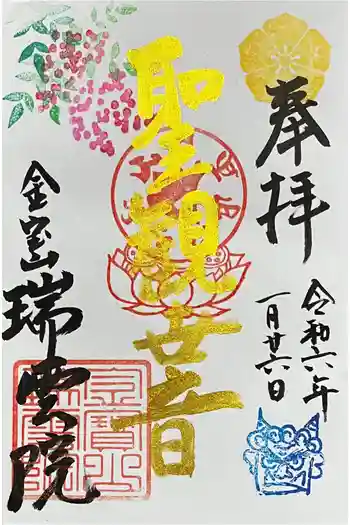 奉拝
令和六年
一月廿六日
聖観世音
金宝山
瑞雲院